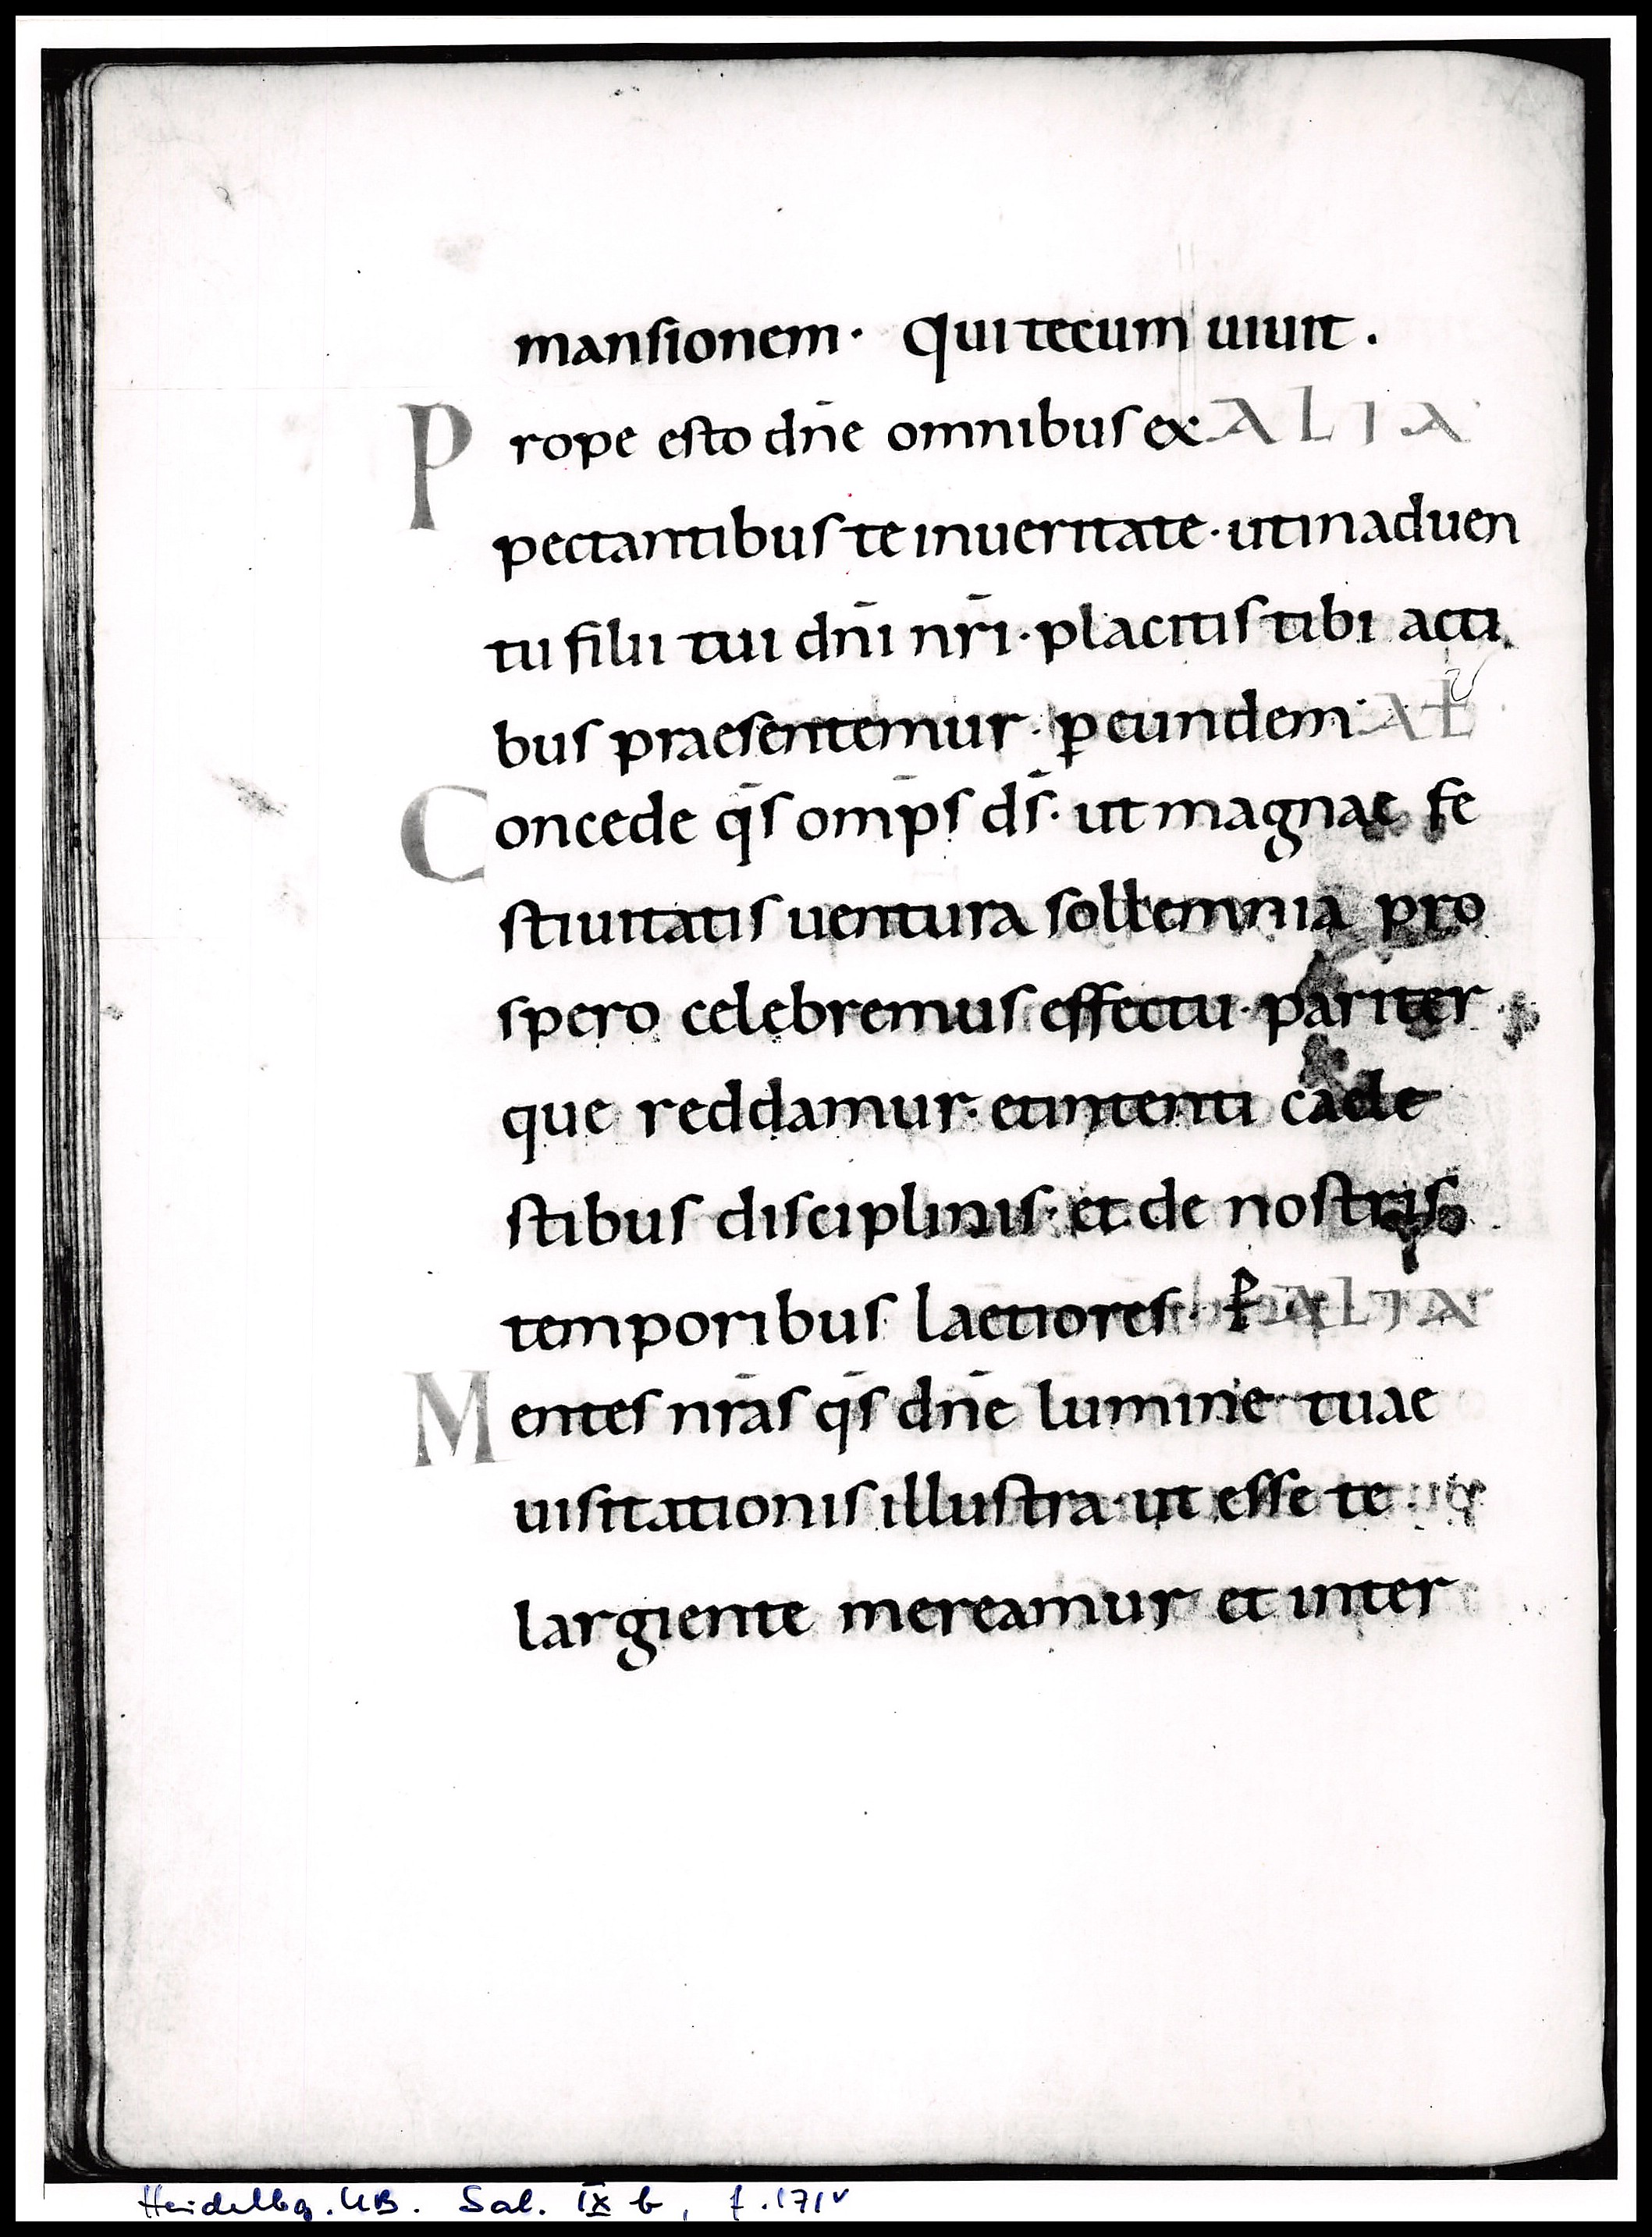 mansionem· Qui tecum uiuit.
Prope esto dñe omnibus ex ALIA
pectantibus te in ueritate· ut in aduen
tu filii tui dñi nr̄i· placitis tibi acti
bus praesentemur· ꝑ eundem· AŁ
Concede q̄s omp̄s d̄s· ut magnae fe
stiuitatis uentura sollemnia pro
spero celebremus effectu· pariter
que reddamur· et intenti caele
stibus disciplinis· et de nostris
temporibus laetiores· P̄ ALIA
Mentes nr̄as q̄s dñe lumine tuae
uisitationis illustra· ut esse te
largiente mereamur et inter
Heidelbg. UB. Sal. IX b, f. 171v